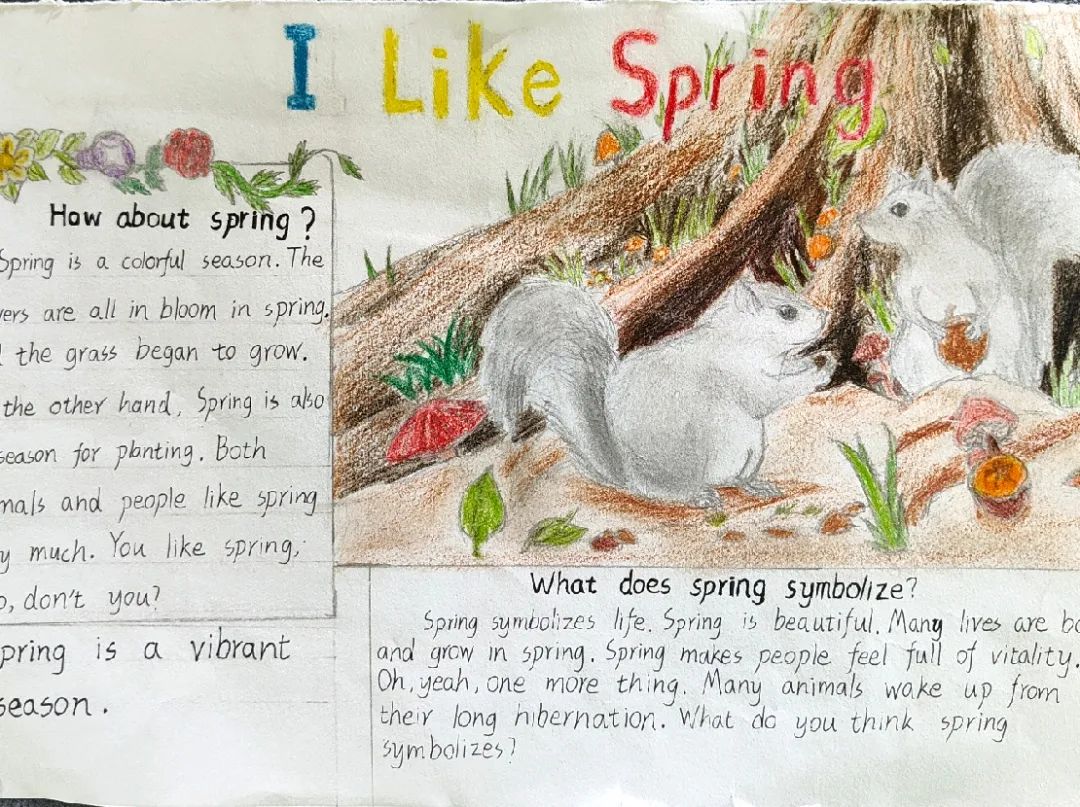 I Like Spring
How about spring?
Spring is a colorful season. The
ers are all in bloom in spring.
the grass began to grow.
the other hand, Spring is also
season for planting. Both
mals and people like spring
y much. You like spring,
o, don't you?
pring is a vibrant
season.
What does spring symbolize?
Spring symbolizes life. Spring is beautiful. Many lives are bo
and grow in spring. Spring makes people feel full of vitality.
Oh, yeah, one more thing. Many animals wake up from
their long hibernation. What do you think spring
symbolizes?